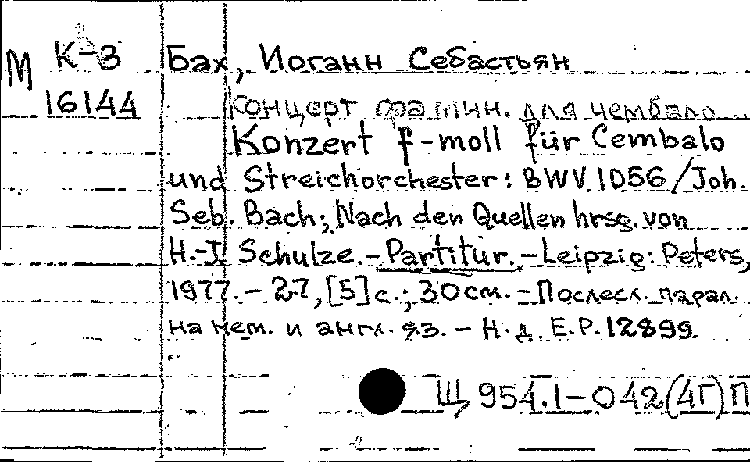 М К-3 Бах, Иоганн Себастьян
16144 Концерт фа мин. для чембало
Konzert f-moll für Cembalo
und Streichorchester: BWV 1056/Joh.
Seb. Bach; Nach den Quellen hrsg. von
H.-J. Schulze.-Partitur.-Leipzig: Peters,
1977.-27,[5]с.; 30см.-Послесл. парал.
на нем. и англ. яз. - Н. д. E.P.12899.
Щ 954.1-042(4Г)П